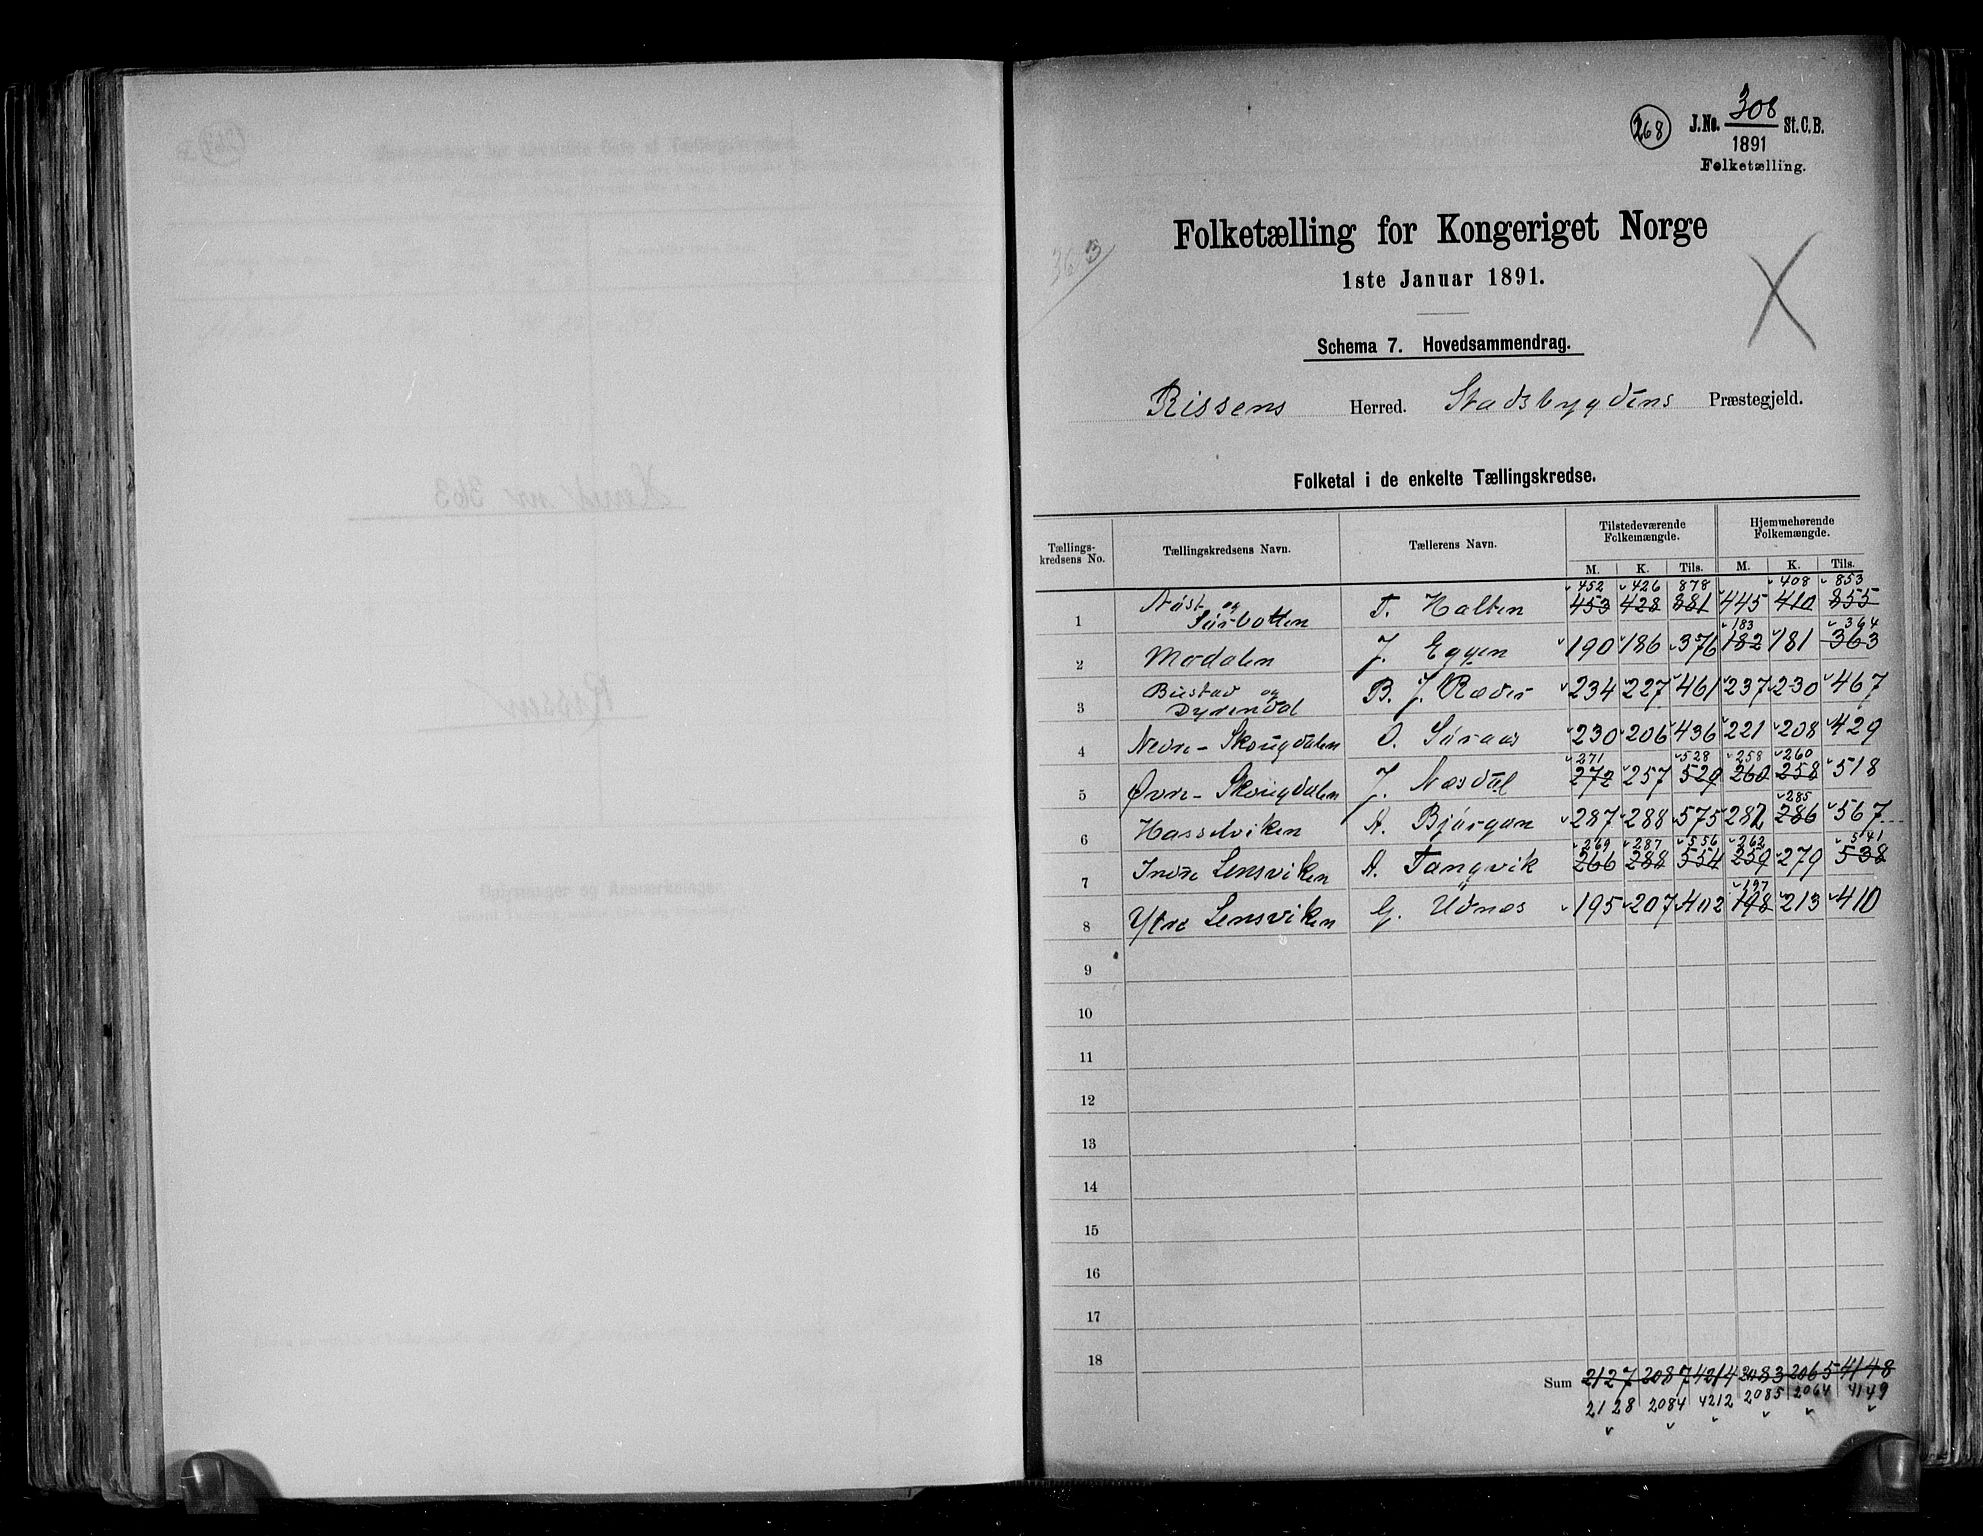 268 J.No. 308 St.C.B.
1891
Folketælling.
363
Folketælling for Kongeriget Norge
1ste Januar 1891.
Schema 7. Hovedsammendrag.
Rissens Herred. Stadsbygdens Præstegjeld.
Folketal i de enkelte Tællingskredse.
Tællings-kredsens No. Tællingskredsens Navn. Tællerens Navn. Tilstedeværende Folkemængde. Hjemmehørende Folkemængde.
M. K. Tils. M. K. Tils.
452 426 878 408 853
1 Nøst- og Sørbotten T. Halten 453 428 881 445 410 855
183 364
2 Modalen J. Eggen 190 186 376 182 181 363
3 Bustad og Dyrendal B. J. Ræder 234 227 461 237 230 467
4 Nedre-Skougdalen O. Søraas 230 206 436 221 208 429
271 528 258 260
5 Øvre-Skougdalen J. Næsdal 272 257 529 260 258 518
285
6 Hasselviken A. Bjørgan 287 288 575 282 286 567
269 287 556 262 541
7 Indre Lensviken A. Tangvik 266 288 554 259 279 538
197
8 Ytre Lensviken G. Udnæs 195 207 402 198 213 410
9
10
11
12
13
14
15
16
17
18
Sum 2127 2087 4214 2083 2065 4148
2128 2084 4212 2085 2064 4149